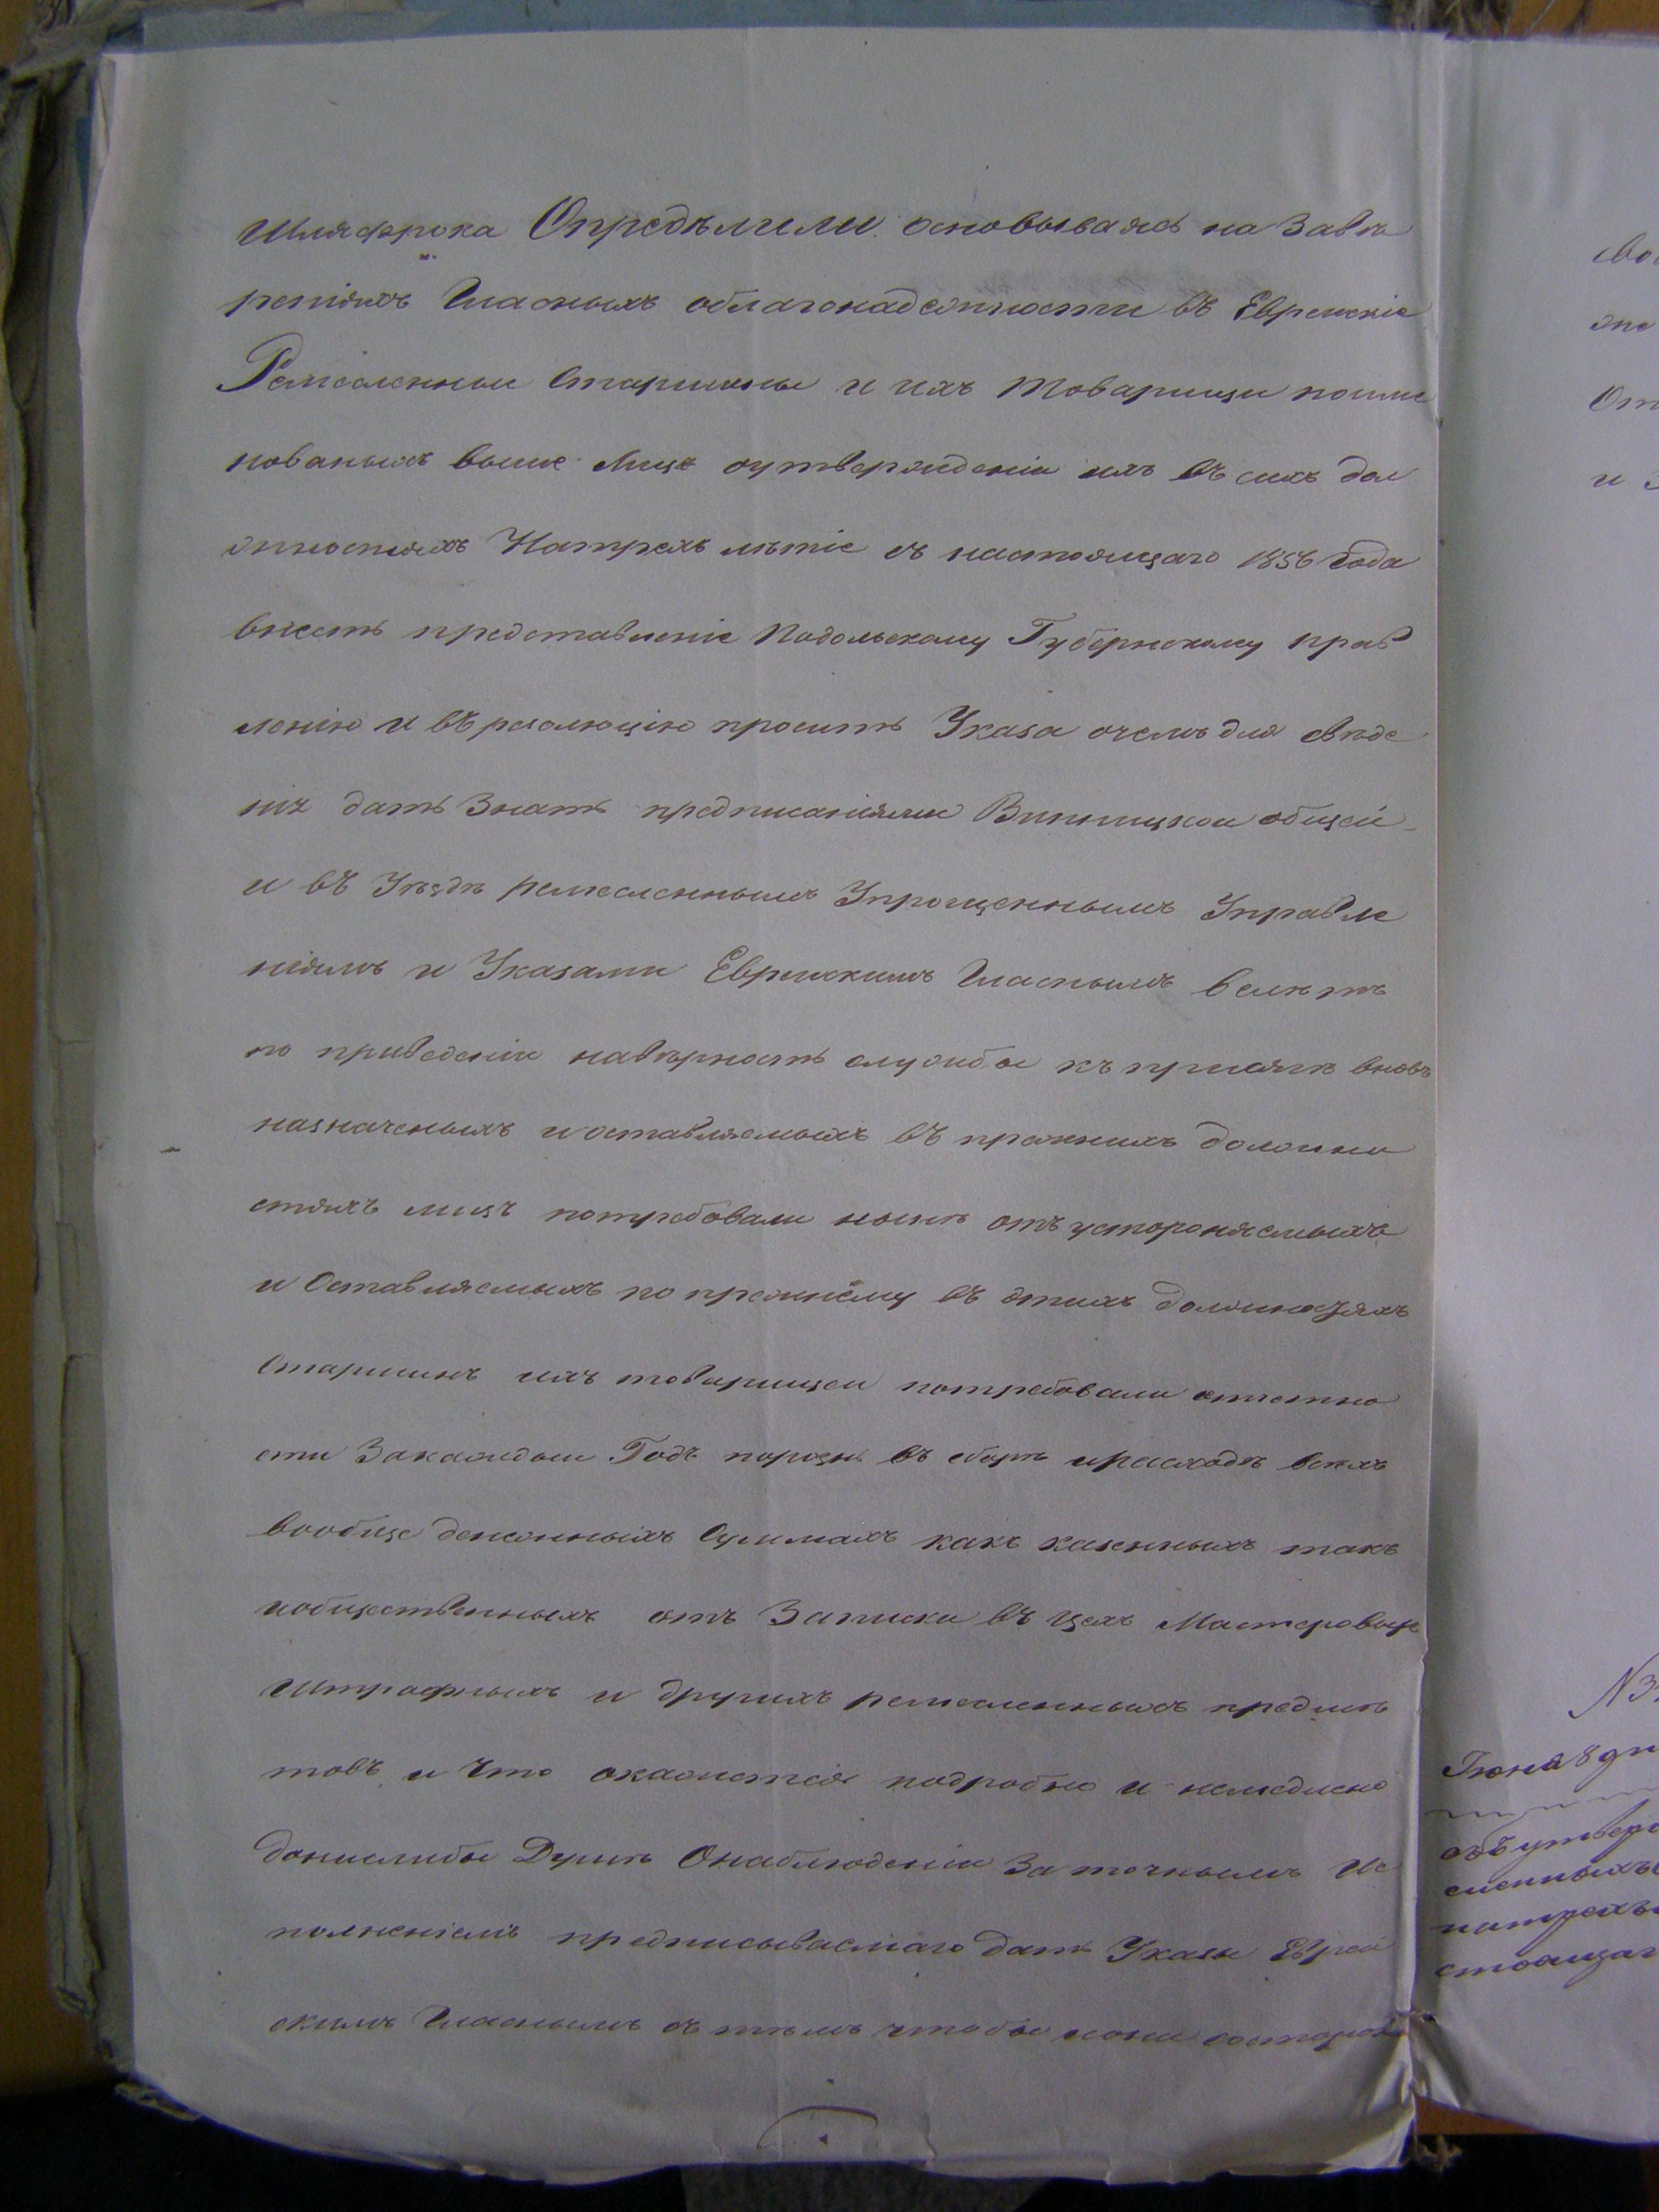 Шляфрока Опредѣлили: основываясь на завѣ
реніяхъ Гласныхъ облагонадежности въ Еврейскіе
Ремесленныи Старшины и ихъ Товарищи поиме
нованыхъ выше Лицъ оутвержденіи ихъ въ сихъ дол
жностяхъ Натрехъ лѣтіе съ настоящаго 1856 года
внесть представленіе Подольскому Губернскому прав
ленію и въ резолюцію просить Указа очемъ для свѣде
нія дать знать предписаніями Винницкои общей
и въ Уѣздѣ ремесленнымъ Упрощеннымъ Управле
ніямъ и Указами Еврейскимъ Гласнымъ велѣть
по приведеніи навѣрность службы къ присягѣ вновь
назначеныхъ иоставляемыхъ въ прежнихъ должно
стяхъ лицъ потребовали нынѣ отъ устороняемыхъ
и Оставляемыхъ по прежнему въ этихъ должностяхъ
Старшинъ ихъ товарищеи потребовали отчетно
сти Закаждыи Годъ порознь въ сборѣ ирасходѣ всѣхъ
вообще денежныхъ Суммахъ какъ казенныхъ такъ
иобщественныхъ отъ Записки въ цехъ Мастеровыхъ
Штрафныхъ и другихъ ремесленныхъ предмѣ
товъ и Что окажется подробно и немедлено
донислибы Думѣ Онаблюденіи За точнымъ Ис
полненіемъ предписываемаго дать Указы Еврей
скимъ Гласнымъ съ тѣмъ чтобы иони состороны
сво
Отп
и З
Іюня 8 дн
объ утверж
сленныхъ
натрехъ
стоящаг